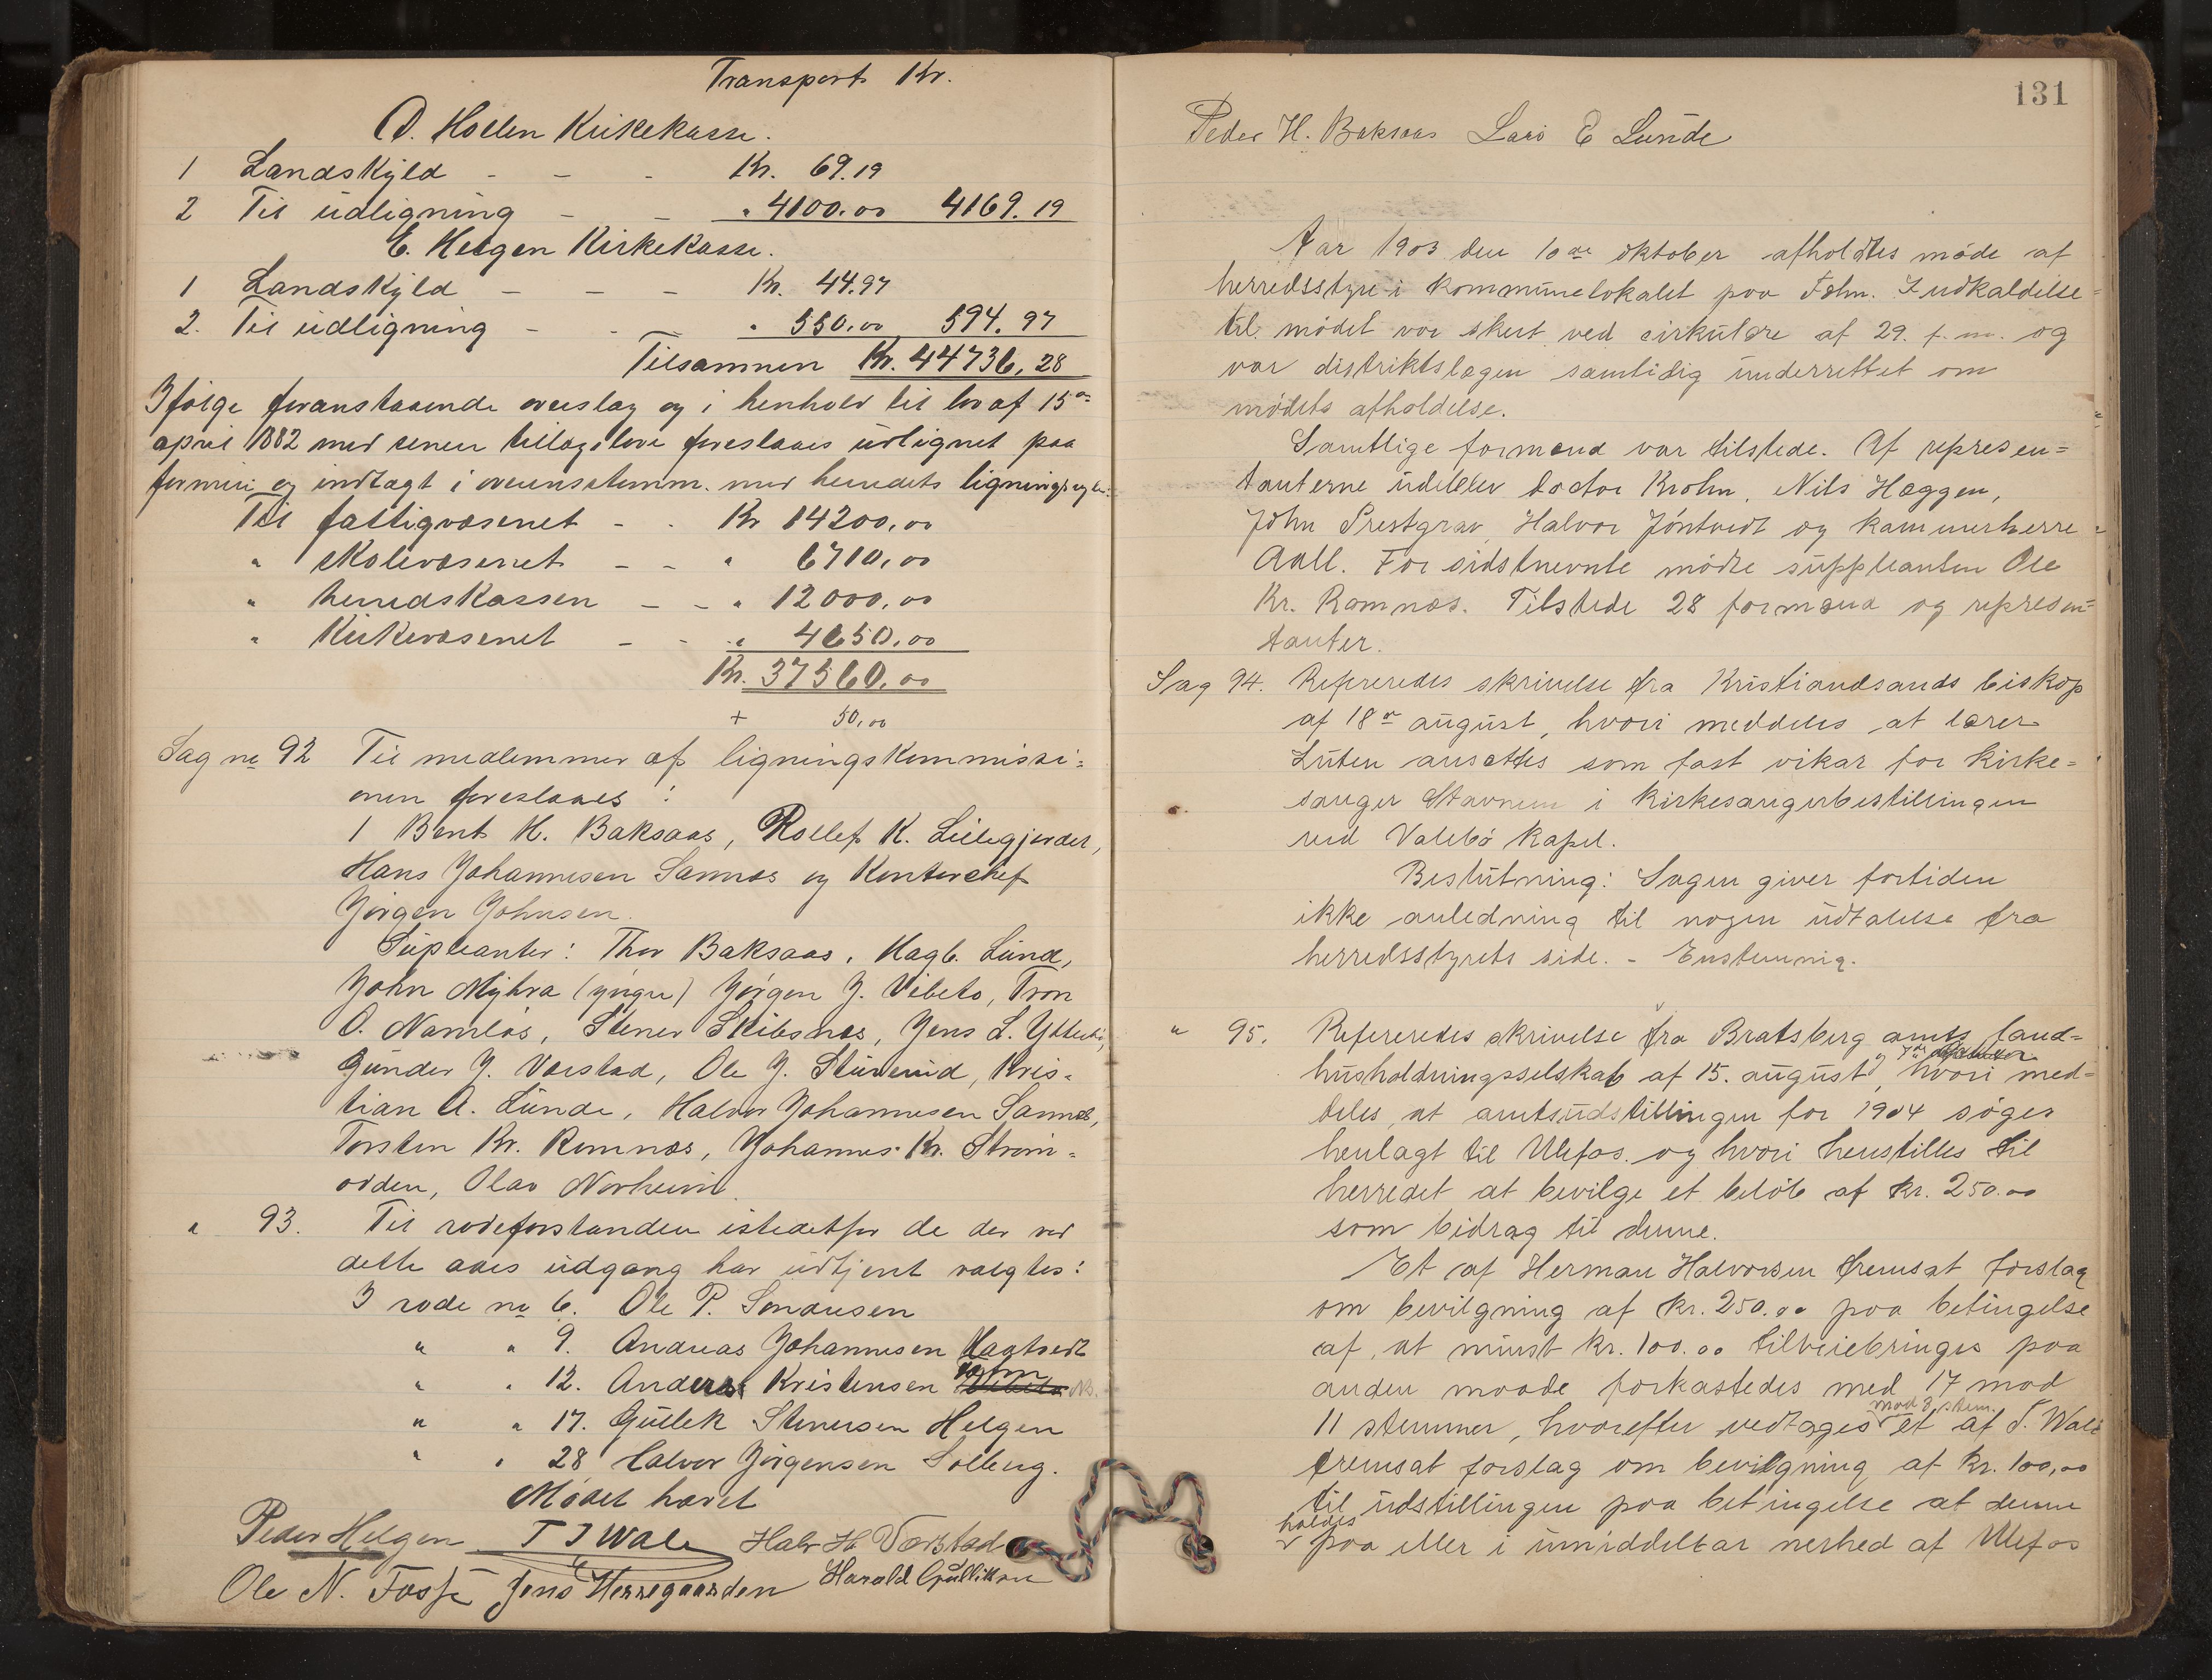 Transport Kr.
D. Hollen Kirkekasse.
1 Landskyld - - - Kr. 69.19
2 Til udligning - - " 4100.00 4169.19
E. Helgen Kirkekasse.
1 Landskyld - - - Kr. 44.97
2. Til udligning - - - " 550.00 594.97
Tilsammen Kr. 44736,28
Ifølge foranstaaende overslag og i henhold til lov af 15de
april 1882 med senere tillægslove foreslaaes udlignet paa
formue og indtægt i overensstemm. med herredets
Til fattigvæsenet - - Kr 14200,00
" skolevæsenet - - " 6710,00
" herredskassen - - " 12000,00
" Kirkevæsenet - - " 4650,00
Kr. 37560,00
+ 50,00
Sag no 92 Til medlemmer af ligningskommissi=
onen foreslaaes :
1 Bent H. Baksaas, Rollef K. Lillegjordet,
Hans Johannesen Sannes og Kontorchef
Jørgen Johnsen.
Supleanter: Thor Baksaas, Hagb. Lund,
John Myhra (yngre) Jørgen J. Vibeto, Tron
O. Namløs, Stener Skibsnes, Jens L.
Gunder J. Verstad, Ole J. Sturerud, Kris=
tian A. Lunde, Halvor Johannesen Sannes,
Torsten Kr. Romnes, Johannes Kr. Strøm=
odden, Olav Norheim.
" 93. Til rodeforstandere istedetfor de der ved
dette aars udgang har udtjent valgtes:
I rode no 6. Ole P. Sondresen
" " 9. Andreas Johannesen Hagtvedt
" " 12. Anders Kristensen
" " 17. Gullek Stenersen Helgen
" " 28 Halvor Jørgensen Solberg.
Mødet hævet
Peder Helgen T J Wale Halv H Verstad
Ole N. Fosse Jens Herregaarden Harald Gullikson
131
Peder H. Baksaas Lars E Lunde
Aar 1903 den 10de oktober afholdtes møde af
herredsstyre i kommunelokalet paa Fehn. Indkaldelse
til mødet var skeet ved cirkulære af 29. f. m. og
var distriktslægen samtidig underrettet om
mødets afholdelse.
Samtlige formænd var tilstede. Af represen=
tanterne udeblev doctor Krohn, Nils Hæggen,
John Prestgrav, Halvor Jøntvedt og kammerherre
Aall. For sidstnevnte mødte suppleanten Ole
Kr. Romnæs. Tilstede 28 formænd og represen=
tanter.
Sag 94. Refereredes skrivelse fra Kristiandsands biskop
af 18de august, hvori meddeles at lærer
Luten ansættes som fast vikar for kirke=
sanger Stavnem i kirkesangerbestillingen
ved Valebø kapel.
Beslutning: Sagen giver fortiden
ikke anledning til nogen udtalelse fra
herredsstyrets side. - Enstemmig.
" 95. Refereredes skrivelse fra Bratsberg amts land=
husholdningsselskab af 15. august, hvori med=
deles, at amtsudstillingen for 1904 søges
henlagt til Ulefos og hvori henstilles til
herredet at bevilge et beløb af kr. 250.00
som bidrag til denne.
Et af Herman Halvorsen fremsat forslag
om bevilgning af kr. 250.00 paa betingelse
af, at mindst kr. 100.00 tilveiebringes paa
anden maade forkastedes med 17 mod
mod 8 stem.
11 stemmer, hvorefter vedtoges et af T. Wale
fremsat forslag om bevilgning af kr. 100,00
til udstillingen paa betingelse at denne
holdes
paa eller i umiddelbar nerhed af Ulefos